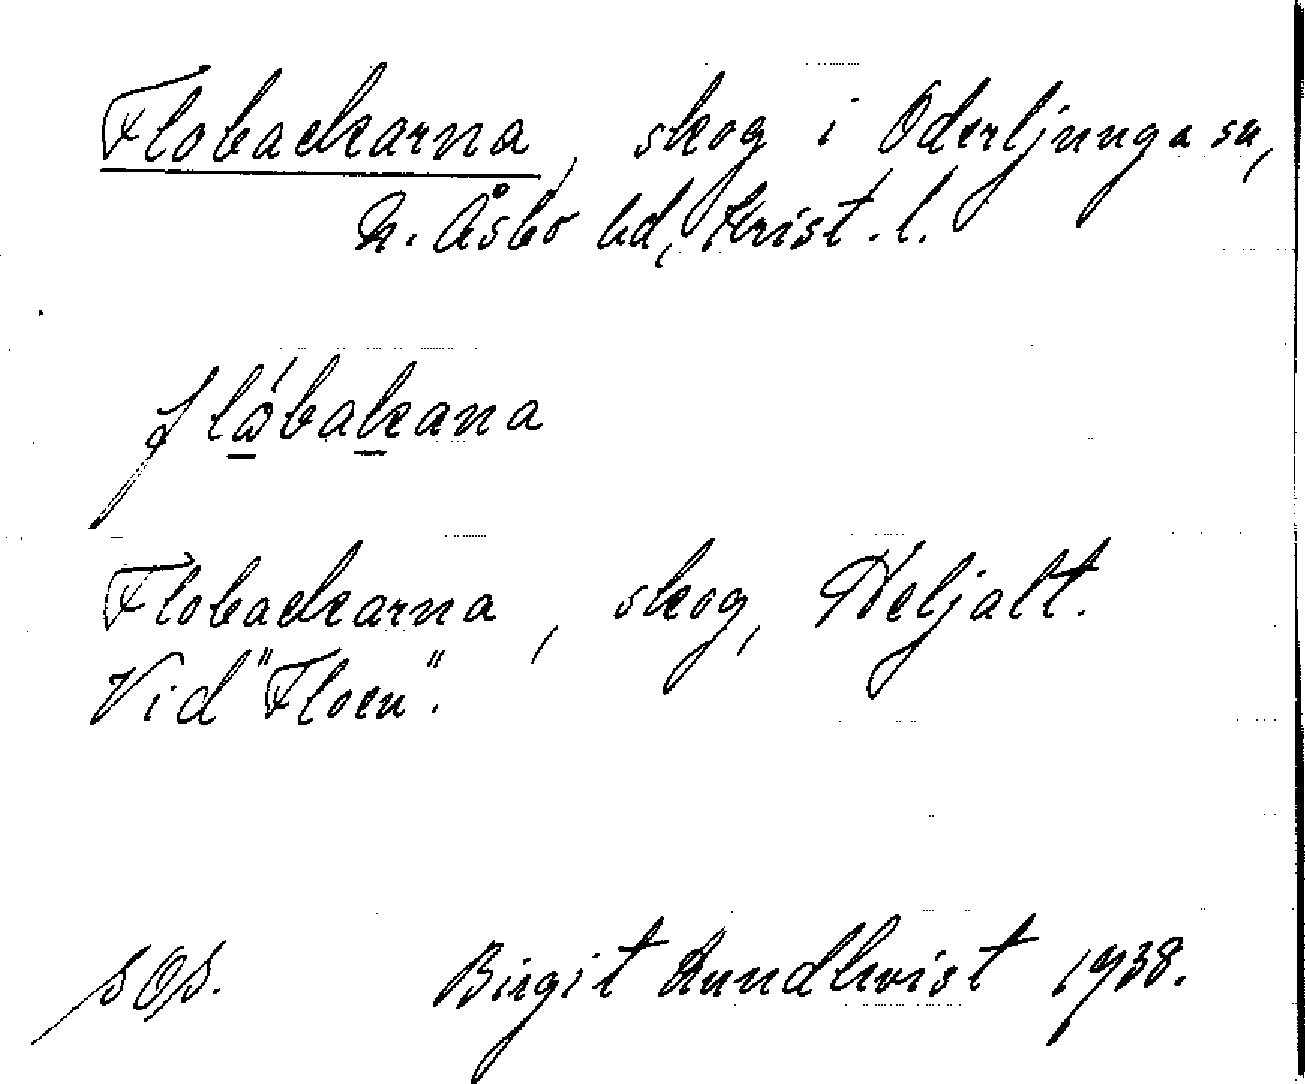 Flobackarna, skog i Oderljunga sn,
N. Åsbo hd, Krist. l.
flώ̱baḵana
Flobackarna, skog, Heljalt.
Vid "Floen".
SOS. Birgit Lundkvist 1938.